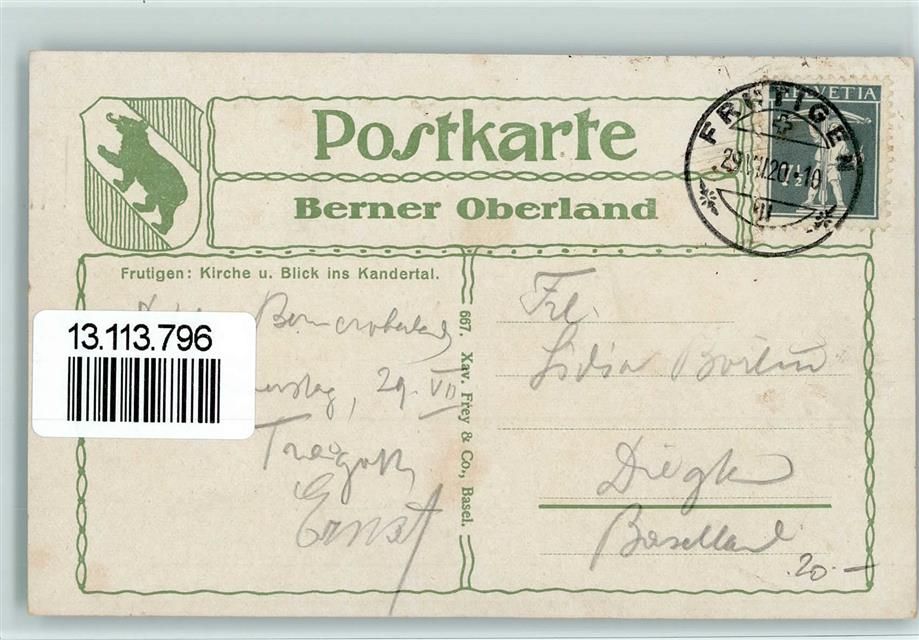 Postkarte
Berner Oberland
HELVETIA
FRUTIGEN
29.VII.20.-10
Frutigen: Kirche u. Blick ins Kandertal.
667. Xav. Frey & Co., Basel.
13.113.796
Berneroberland
29. VII
Ernst
Frl.
Lidia
Diegten
Baselland
20.—